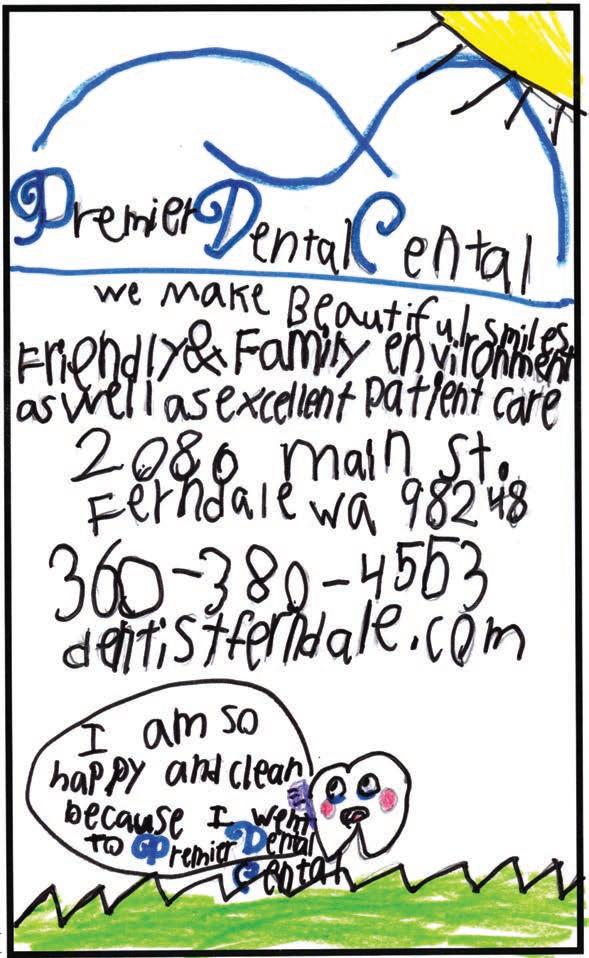 Premier Dental Cental
we make Beautiful smiles
Friendly & Family environment
as well as excellent patient care
2080 main st.
Ferndale wa 98248
360-380-4553
dentistferndale.com
I am so
happy and clean
because I went
to Premier Dental
Cental